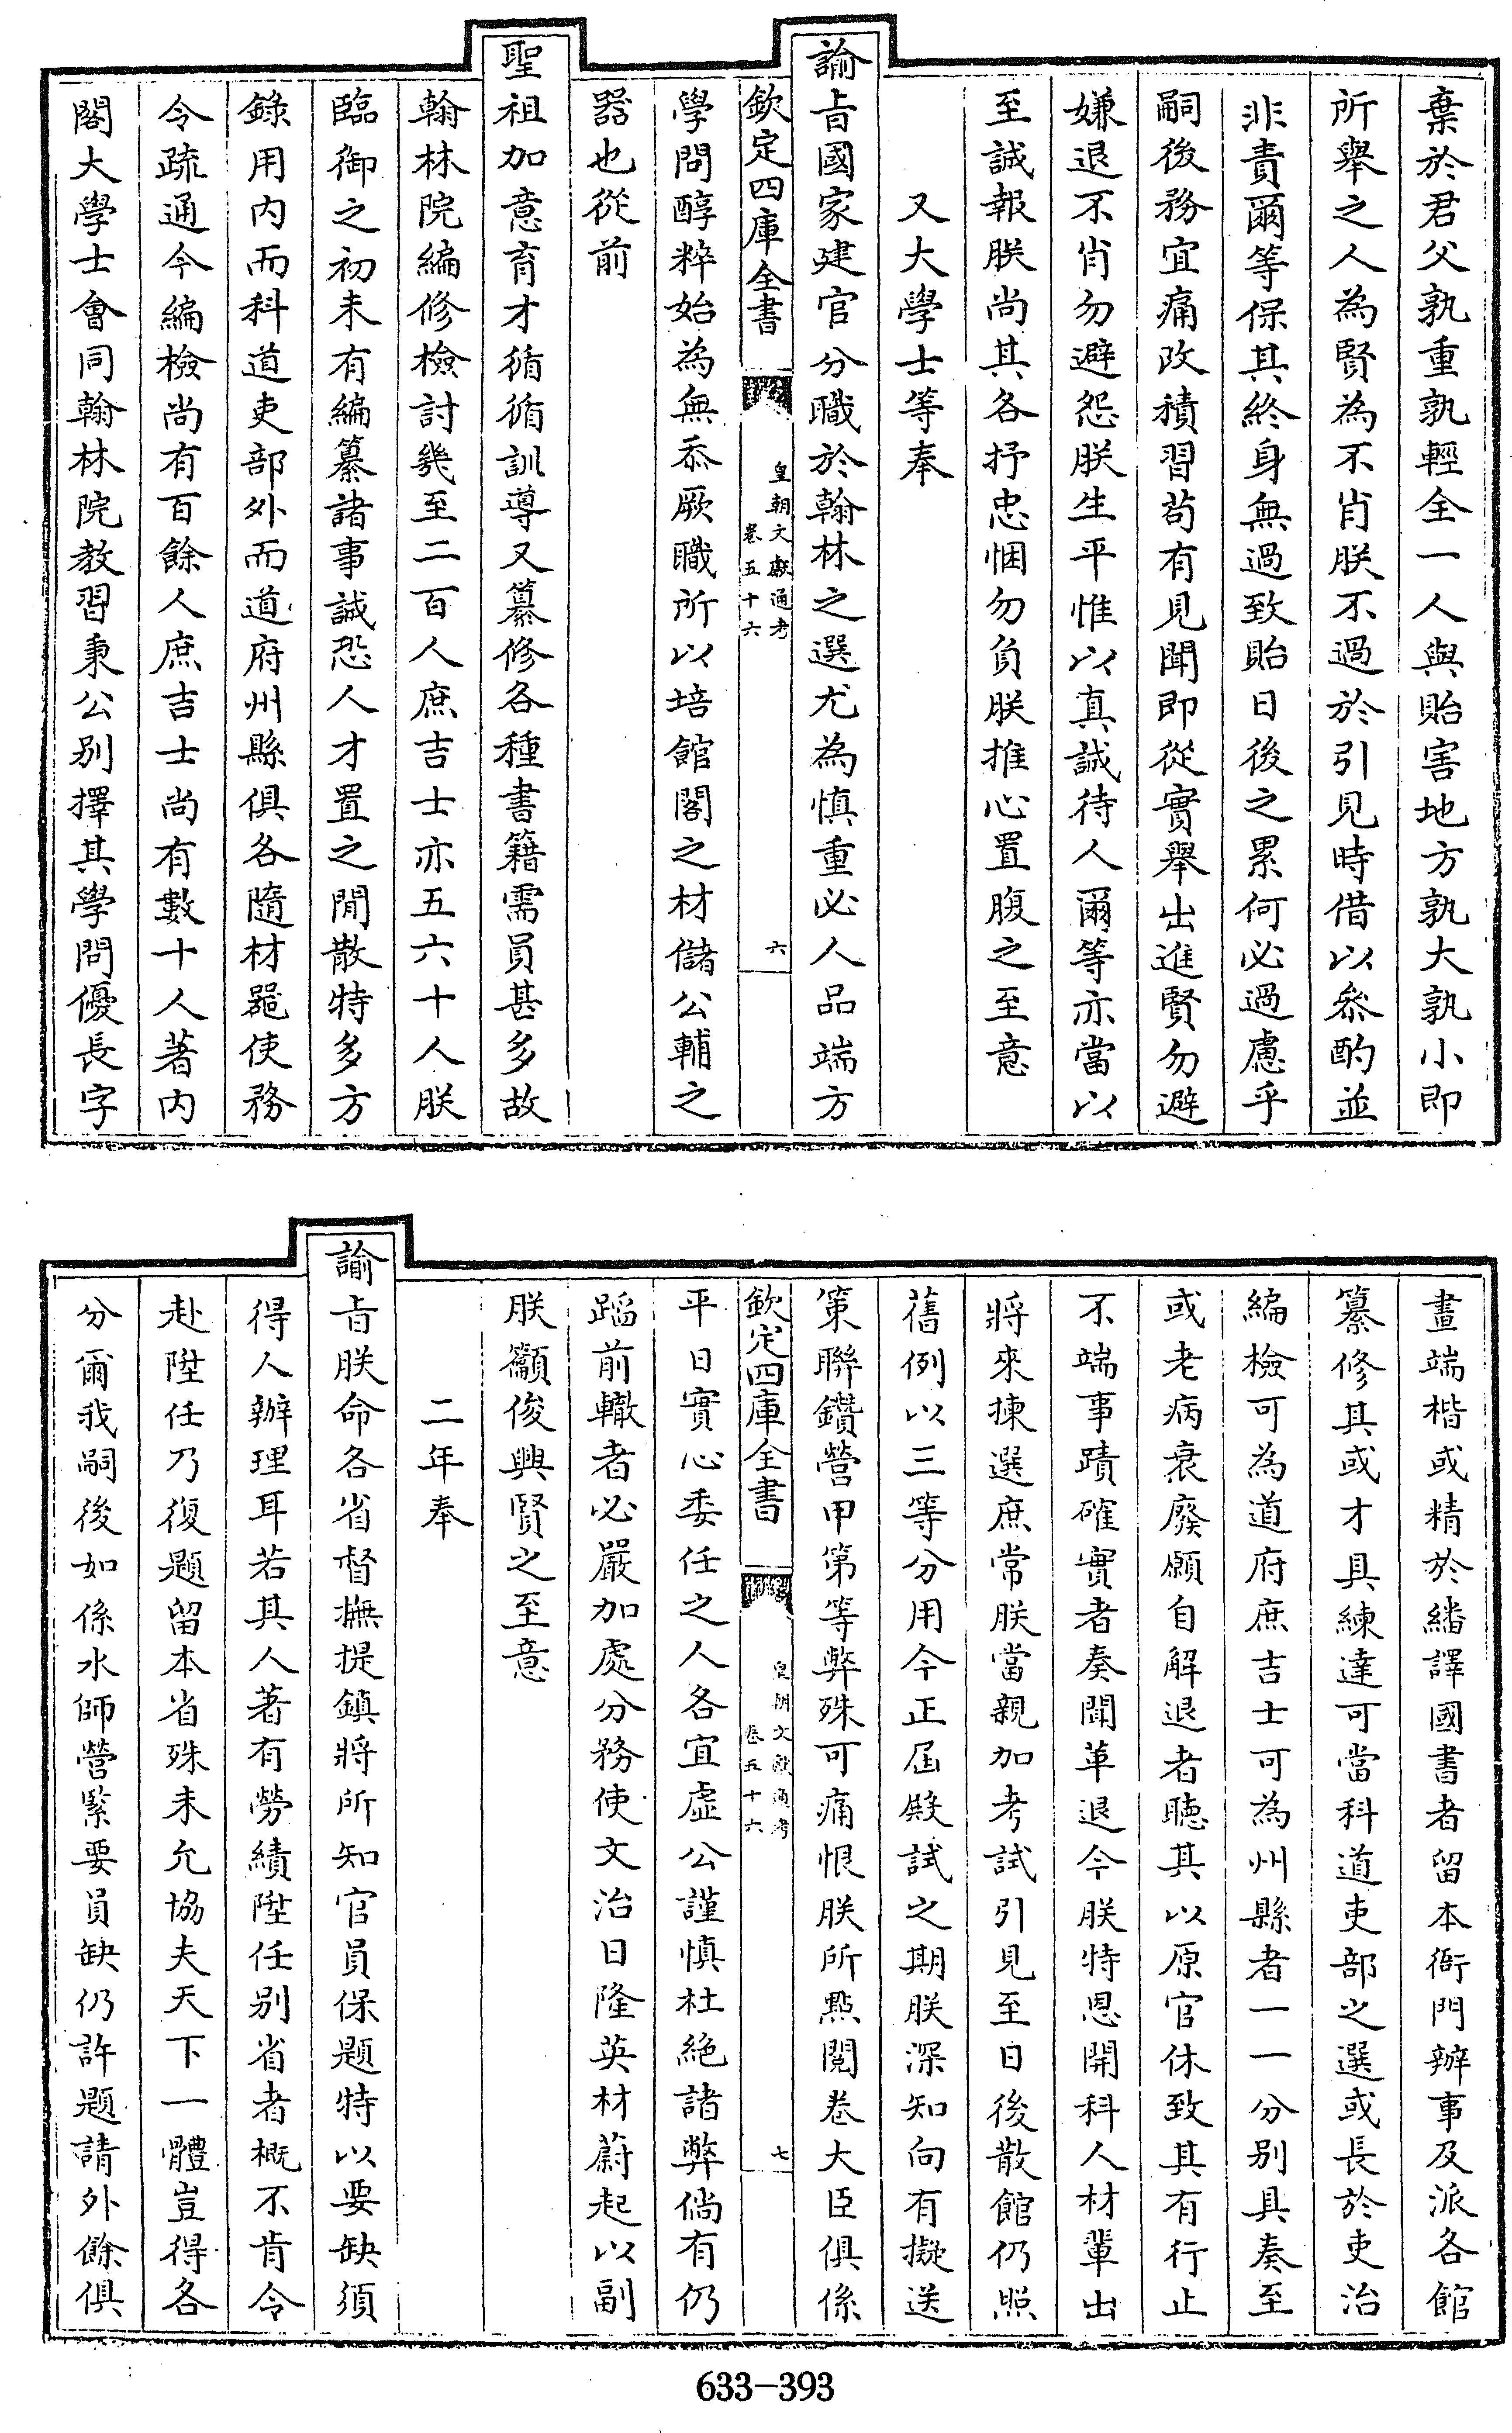 棄於君父孰重孰輕全一人與貽害地方孰大孰小即
所舉之人為賢為不肖朕不過於引見時借以叅酌並
非責爾等保其終身無過致貽日後之累何必過慮乎
嗣後務宜痛改積習苟有見聞即從實舉出進賢勿避
嫌退不肖勿避怨朕生平惟以真誠待人爾等亦當以
至誠報朕尚其各抒忠悃勿負朕推心置腹之至意
又大學士等奉
諭旨國家建官分職於翰林之選尤為慎重必人品端方
欽定四庫全書
皇朝文獻通考
卷五十六
六
學問醇粹始為無忝厥職所以培館閣之材儲公輔之
器也從前
聖祖加意育才循循訓導又纂修各種書籍需員甚多故
翰林院編修檢討幾至二百人庶吉士亦五六十人朕
臨御之初未有編纂諸事誠恐人才置之閒散特多方
錄用内而科道吏部外而道府州縣俱各隨材器使務
令疏通今編檢尚有百餘人庶吉士尚有數十人著内
閣大學士會同翰林院教習秉公别擇其學問優長字
畫端楷或精於繙譯國書者留本衙門辦事及派各館
纂修其或才具練達可當科道吏部之選或長於吏治
編檢可為道府庶吉士可為州縣者一一分别具奏至
或老病衰廢願自解退者聽其以原官休致其有行止
不端事蹟確實者奏聞革退今朕特恩開科人材輩出
將來揀選庶常朕當親加考試引見至日後散館仍照
舊例以三等分用今正屆殿試之期朕深知向有擬送
策聯鑽營甲第等弊殊可痛恨朕所點閱卷大臣俱係
欽定四庫全書
皇朝文獻通考
卷五十六
七
平日實心委任之人各宜虛公謹慎杜絶諸弊倘有仍
蹈前轍者必嚴加處分務使文治日隆英材蔚起以副
朕籲俊興賢之至意
二年奉
諭旨朕命各省督撫提鎮將所知官員保題特以要缺須
得人辦理耳若其人著有勞績陞任别省者概不肯令
赴陞任乃復題留本省殊未允協夫天下一體豈得各
分爾我嗣後如係水師營緊要員缺仍許題請外餘俱
633-393